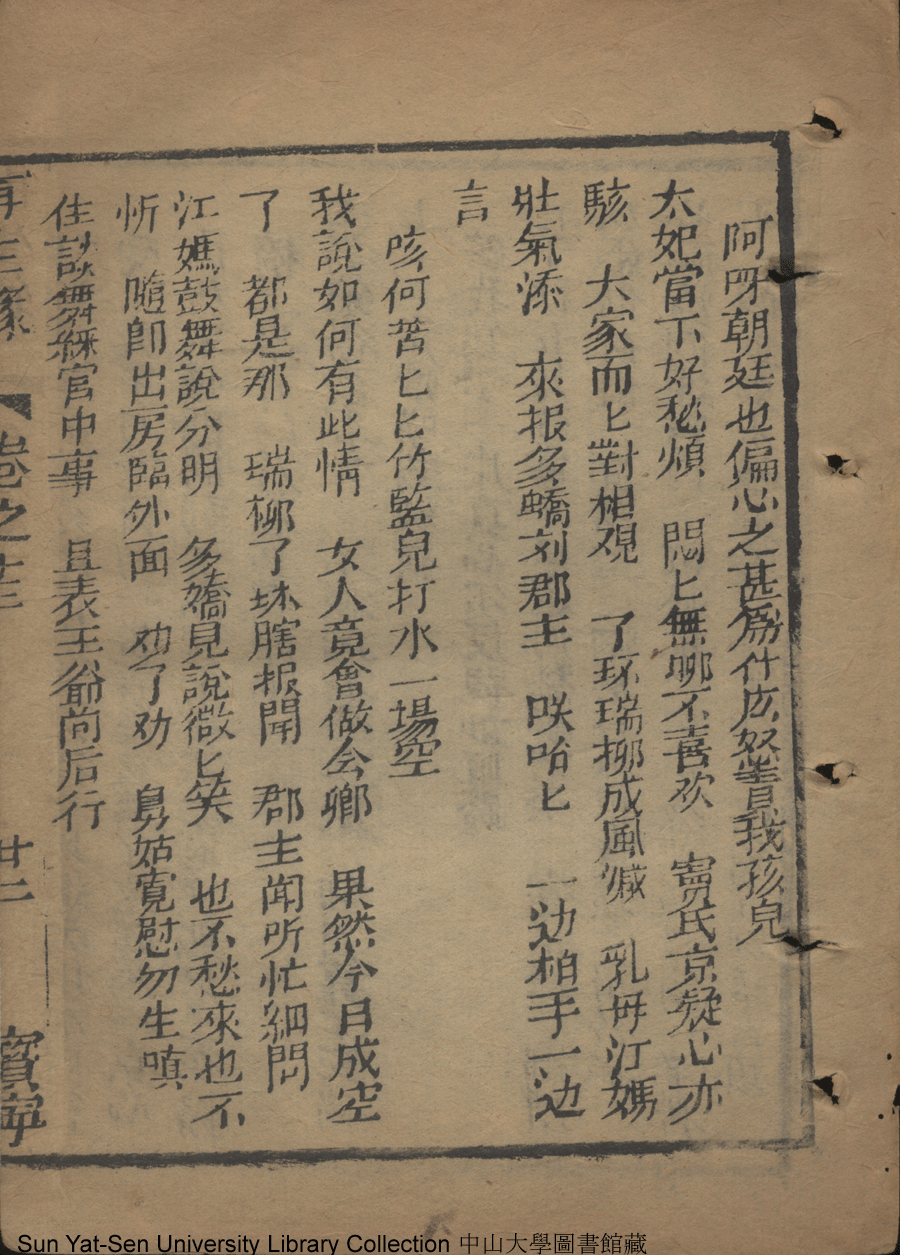 阿呀朝廷也偏心之甚爲什庅怒責我孩兒
太妃當下好愁煩　悶匕無哪不喜欢　賣氏京疑心亦
駭　大家而匕對相覌　了环瑞柳成風燃　乳毋江媽
壯氣添　來报多嬌刘郡主　咲哈匕　一边柏手一边
言
咳何苦匕匕竹監兒打水一場空
我說如何有此情　女人竟會做公卿　果然今日成空
了　都是那　瑞柳了环瞎报聞　郡主闻听忙細問
江媽鼓舞說分明　多嬌見說微匕笑　也不愁來也不
忻　隨卽出房臨外面　劝了劝　舅姑寬慰勿生嗔
住談舞綵官中事　且表王爺尚后行
再生緣　卷之十三　廿二　寳寧
Sun Yat-Sen University Library Collection 中山大學圖書館藏